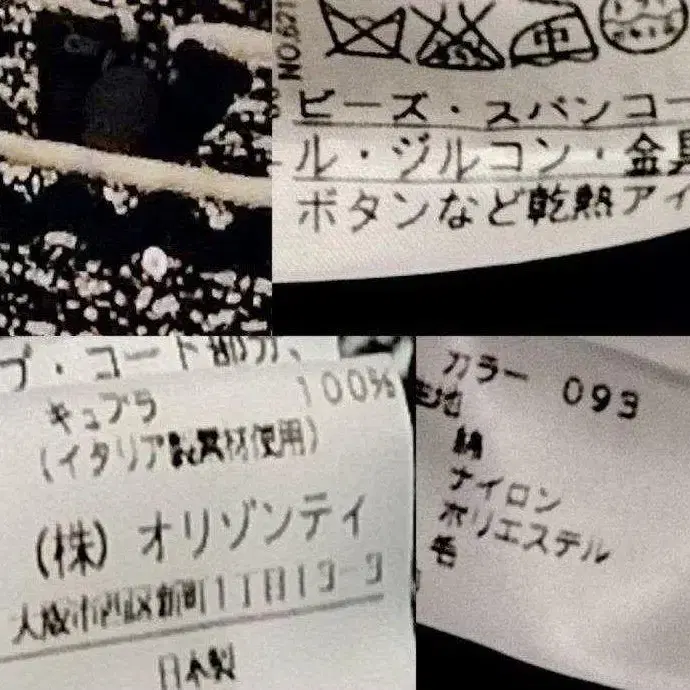 NO.671
ビーズ・スパンコー
ル・ジルコン・金具
ボタンなど乾熱アイ
プ・コード部分、
キュプラ 100%
(イタリア製素材使用)
(株) オリゾンティ
大阪市西区新町1丁目13-3
日本製
カラー 093
生地
綿
ナイロン
ポリエステル
毛